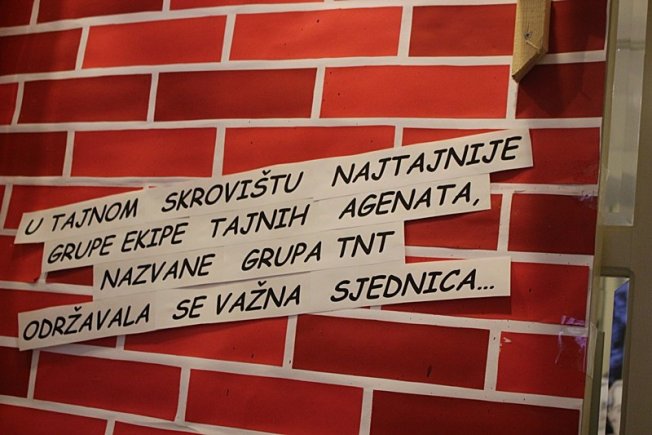 U TAJNOM SKROVIŠTU NAJTAJNIJE
GRUPE EKIPE TAJNIH AGENATA,
NAZVANE GRUPA TNT
ODRŽAVALA SE VAŽNA SJEDNICA...